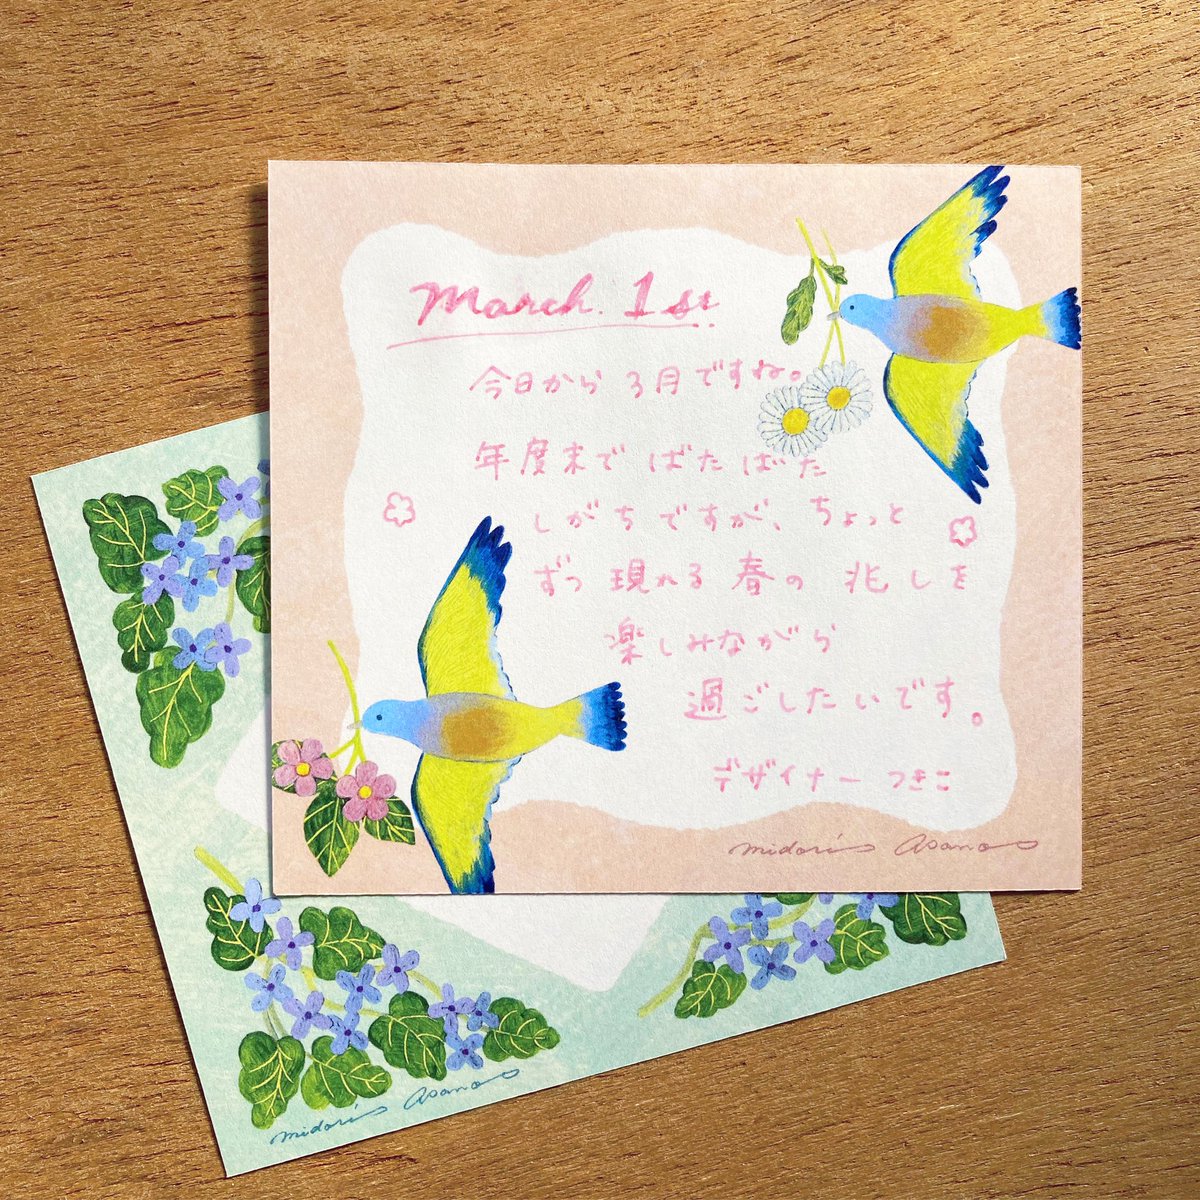 March. 1st.
今日から3月ですね。
年度末でばたばた
しがちですが、ちょっと
ずつ現れる春の兆しを
楽しみながら
過ごしたいです。
デザイナー つきこ
midori asano
midori asano